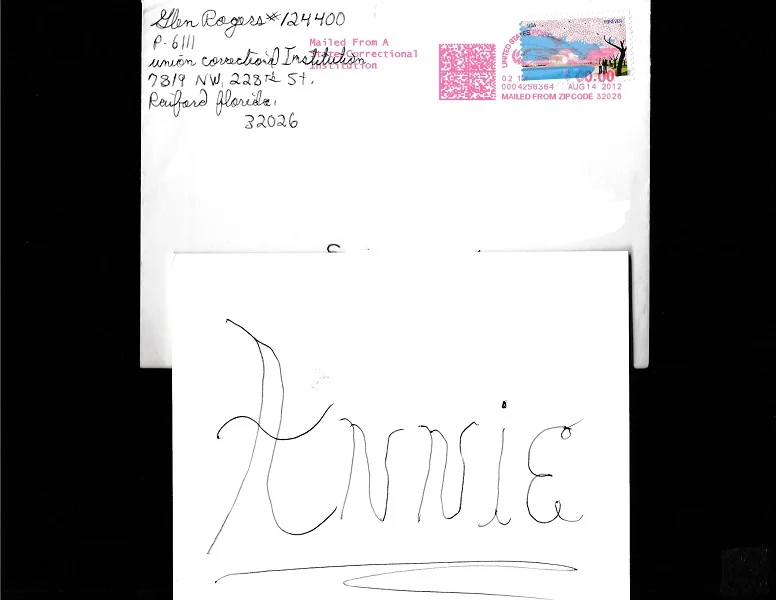 Glen Rogers #124400
P-6111
union correctional Institution
7819 NW, 228th St.
Raiford florida.
32026
Mailed From A
State Correctional
Institution
USA
FOREVER
UNITED STATES
02 1
0004256364 AUG 14 2012
MAILED FROM ZIP CODE 32026
ANNiE